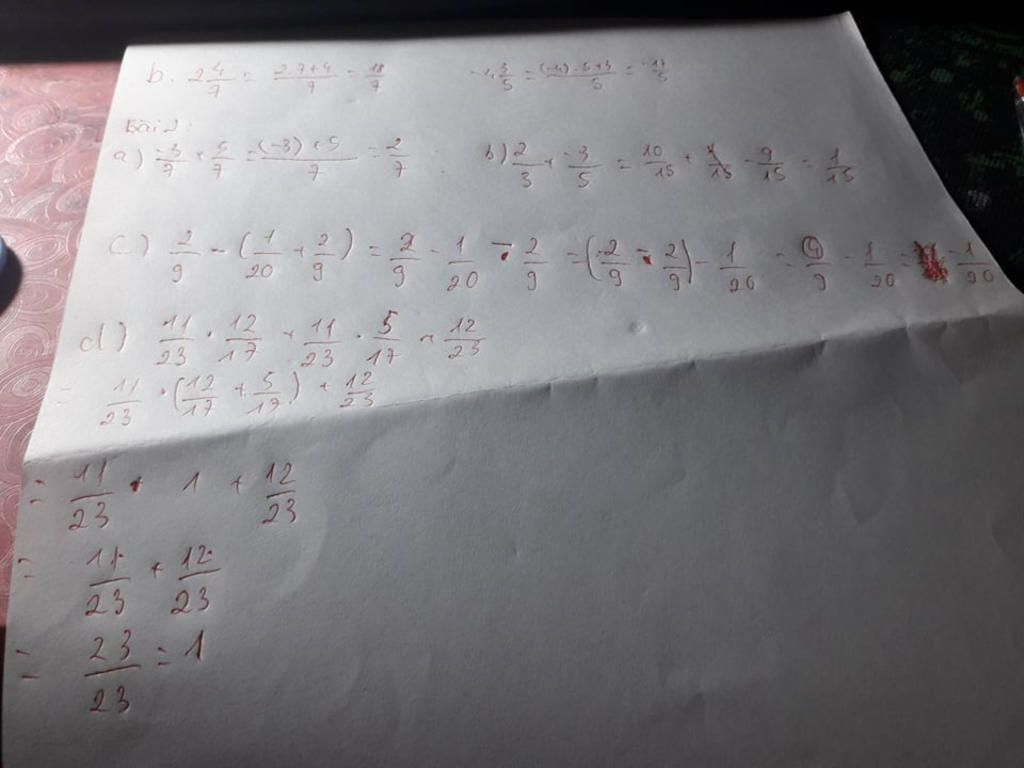 b. 2 4/7 = 2.7+4/7 = 18/7   -4 3/5 = (-4).5+3/5 = -17/5
Bài 2:
a) -3/7 + 5/7 = (-3)+5/7 = 2/7   b) 2/3 + -3/5 = 10/15 + -9/15 = 1/15
c) 2/9 - (1/20 + 2/9) = 2/9 - 1/20 - 2/9 = (2/9 - 2/9) - 1/20 = 0/9 - 1/20 = -1/20
d) 11/23 . 12/17 + 11/23 . 5/17 + 12/23
= 11/23 . (12/17 + 5/17) + 12/23
= 11/23 . 1 + 12/23
= 11/23 + 12/23
= 23/23 = 1